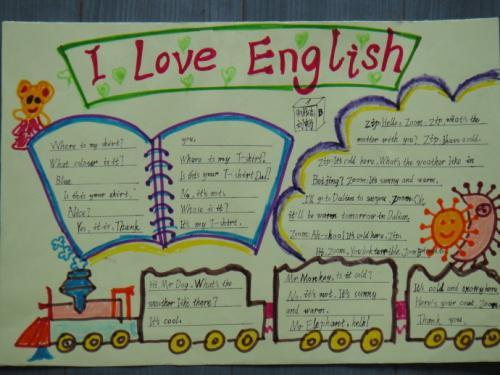 I Love English
Where is my skirt?
What colour is it?
Blue
Is this your skirt,
Alice?
Yes, it is. Thank
you.
Where is my T-shirt?
Is this your T-shirt, Dad?
No, it's not.
Whose is it?
It's my T-shirt.
Zip: Hello, Zoom. Zip, what's the
matter with you? Zip: I have cold.
Zip: It's cold here. What's the weather like in
Beijing? Zoom: It's sunny and warm.
I'll go to Dalian to see you. Zoom: Ok,
it'll be warm tomorrow in Dalian.
Zoom: Ah-choo! It's cold here, Zip.
Hi, Zoom, You look terrible, Zoom
Hi, Mr Dog. What's the
weather like there?
It's cool.
Mr Monkey, is it cold?
No, it's not. It's sunny
and warm.
Mr Elephant, hello!
It's cold and snowy here.
Here's your coat, Zoom.
Thank you.